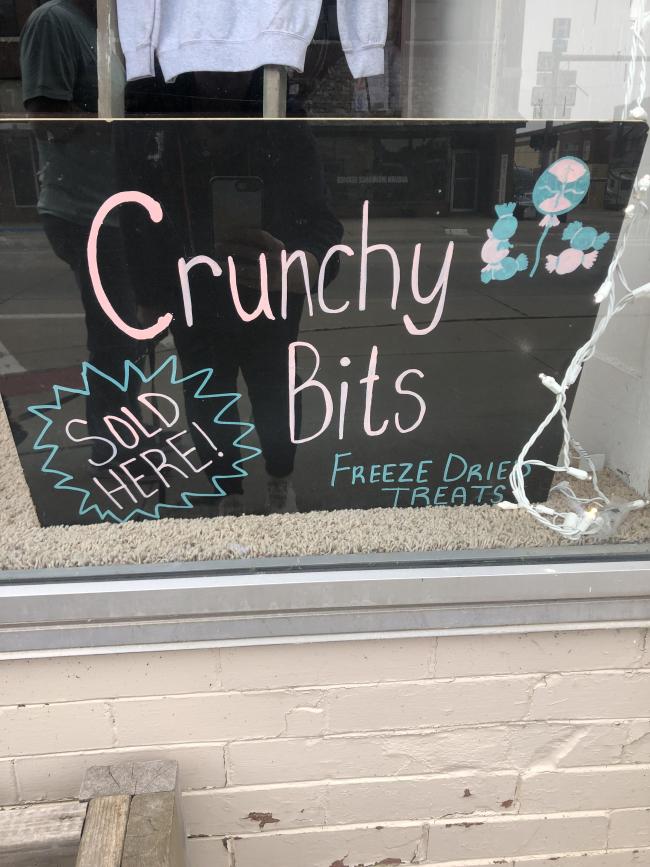 Crunchy
Bits
SOLD
HERE!
FREEZE DRIED
TREATS